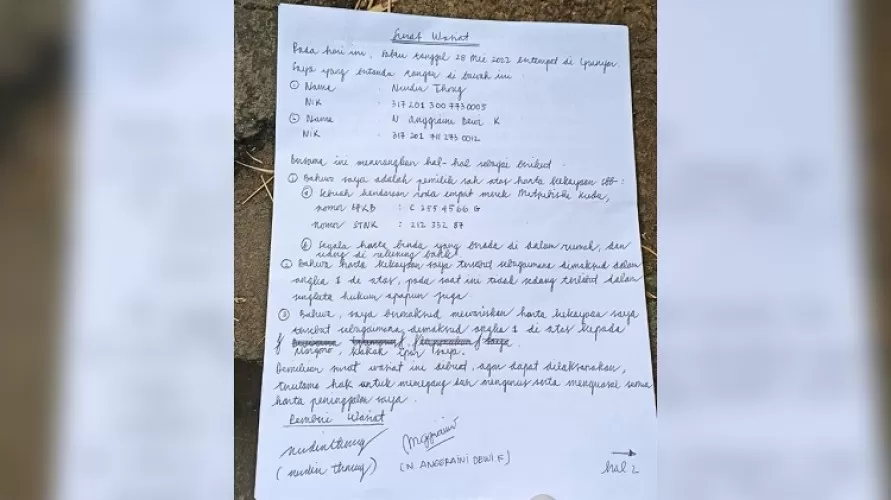 Surat Wasiat
Pada hari ini, Sabtu tanggal 28 Mei 2022 bertempat di
Saya yang bertanda tangan di bawah ini
① Nama Nurdin Thong
NIK : 317 201 300 773 0005
② Nama N Anggraini Dewi K
NIK : 317 201 711 273 0012
Bersama ini menerangkan hal-hal sebagai berikut :
① Bahwa saya adalah pemilik sah atas harta kekayaan sbb :
ⓐ Sebuah kendaraan roda empat merek Mitsubishi Kuda,
nomor BPKB :
nomor STNK : 212 332 87
ⓑ Segala harta benda yang berada di dalam rumah, dan
uang di rekening bank
② Bahwa harta kekayaan saya tersebut sebagaimana dimaksud dalam
angka 1 di atas, pada saat ini tidak sedang terlibat dalam
sengketa hukum apapun juga.
③ Bahwa, saya bermaksud mewariskan harta kekayaan saya
tersebut sebagaimana dimaksud angka 1 di atas kepada
kakak ipar saya.
Demikian surat wasiat ini dibuat, agar dapat dilaksanakan,
terutama hak untuk memegang dan mengurus serta menguasai semua
harta peninggalan saya.
Pemberi Wasiat
(Nurdin Thong) (N. ANGGRAINI DEWI K)
hal 2